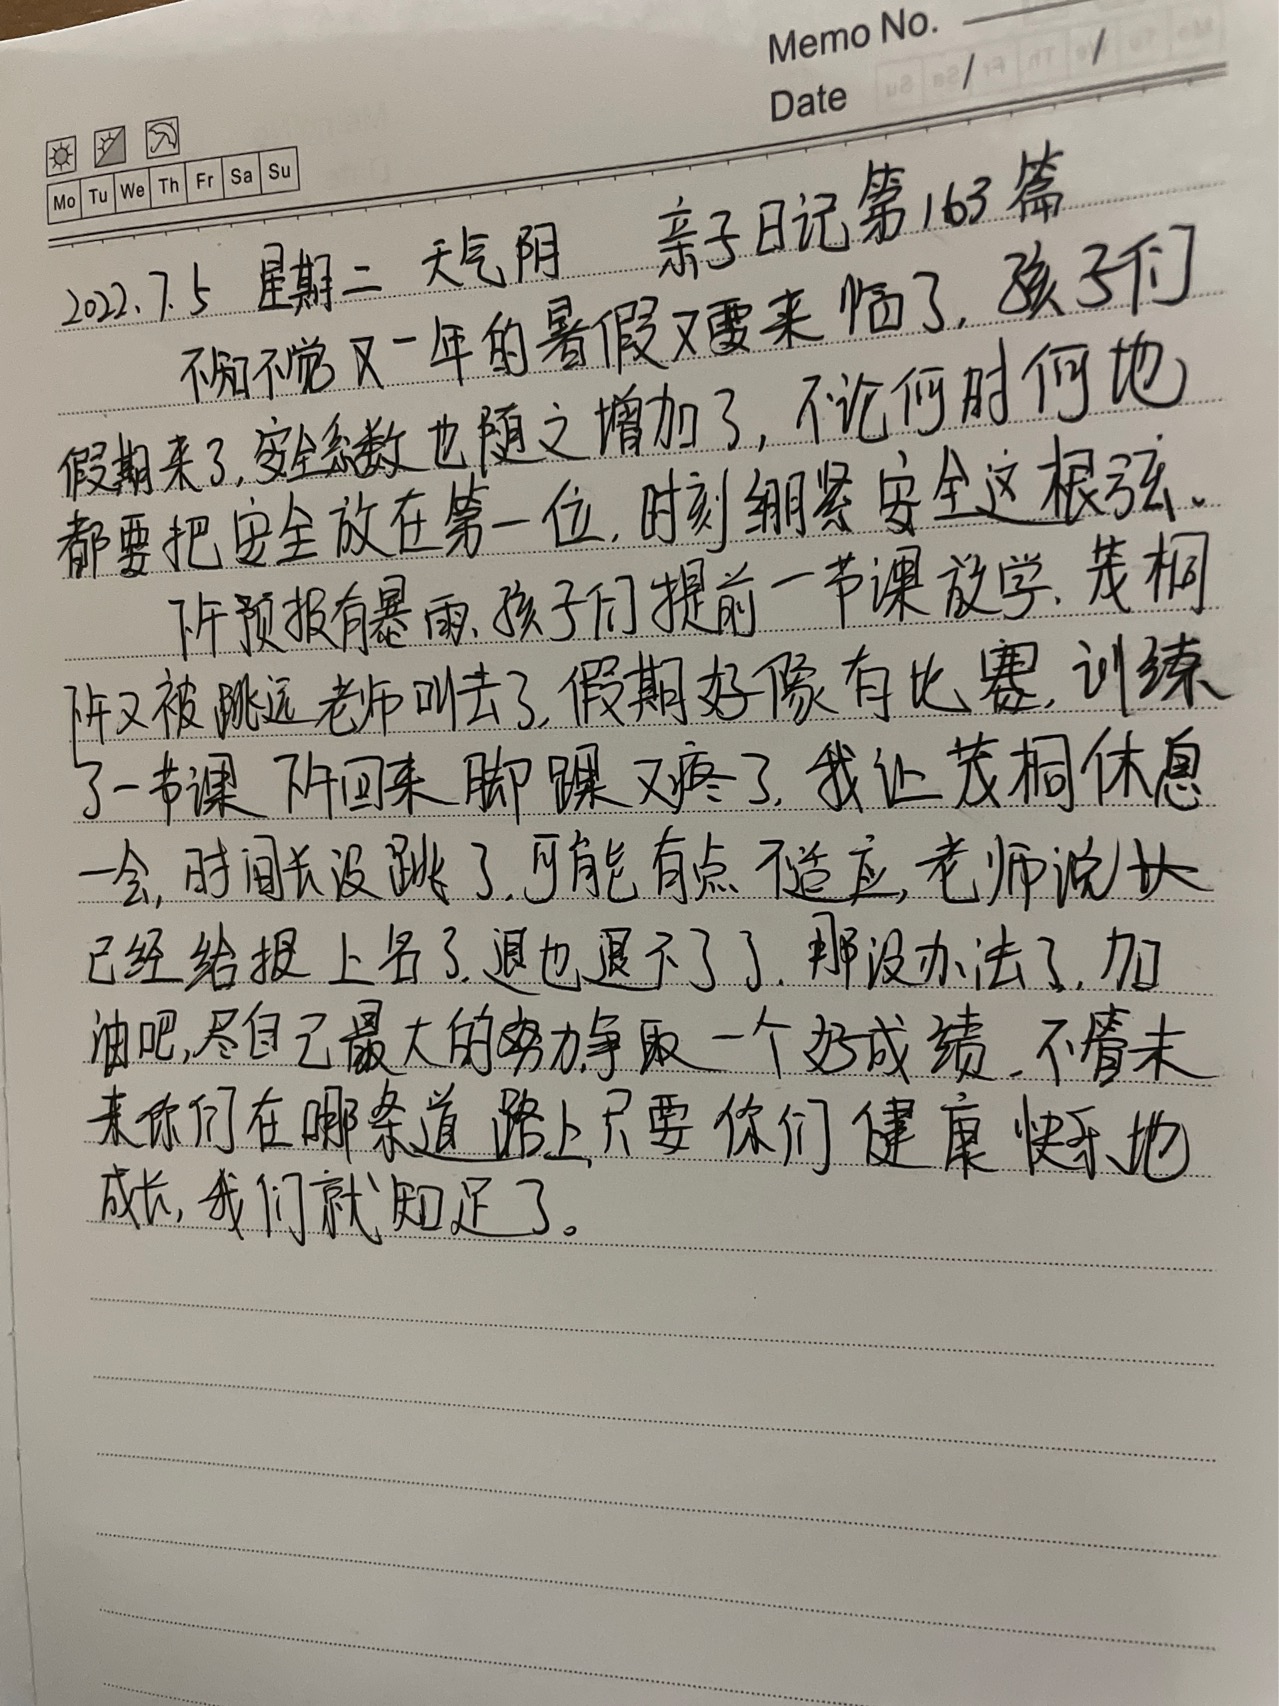 Memo No.
Date / /
Mo Tu We Th Fr Sa Su
2022.7.5 星期二 天气阴 亲子日记第163篇
不知不觉又一年的暑假又要来临了,孩子们
假期来了,安全系数也随之增加了,不论何时何地
都要把安全放在第一位,时刻绷紧安全这根弦。
下午预报有暴雨,孩子们提前一节课放学,茂桐
下午又被跳远老师叫去了,假期好像有比赛,训练
了一节课 下午回来脚踝又疼了,我让茂桐休息
一会,时间长没跳了,可能有点不适应,老师说
已经给报上名了,退也退不了了,那没办法了,加
油吧,尽自己最大的努力争取一个好成绩,不管未
来你们在哪条道路上,只要你们健康快乐地
成长,我们就知足了。